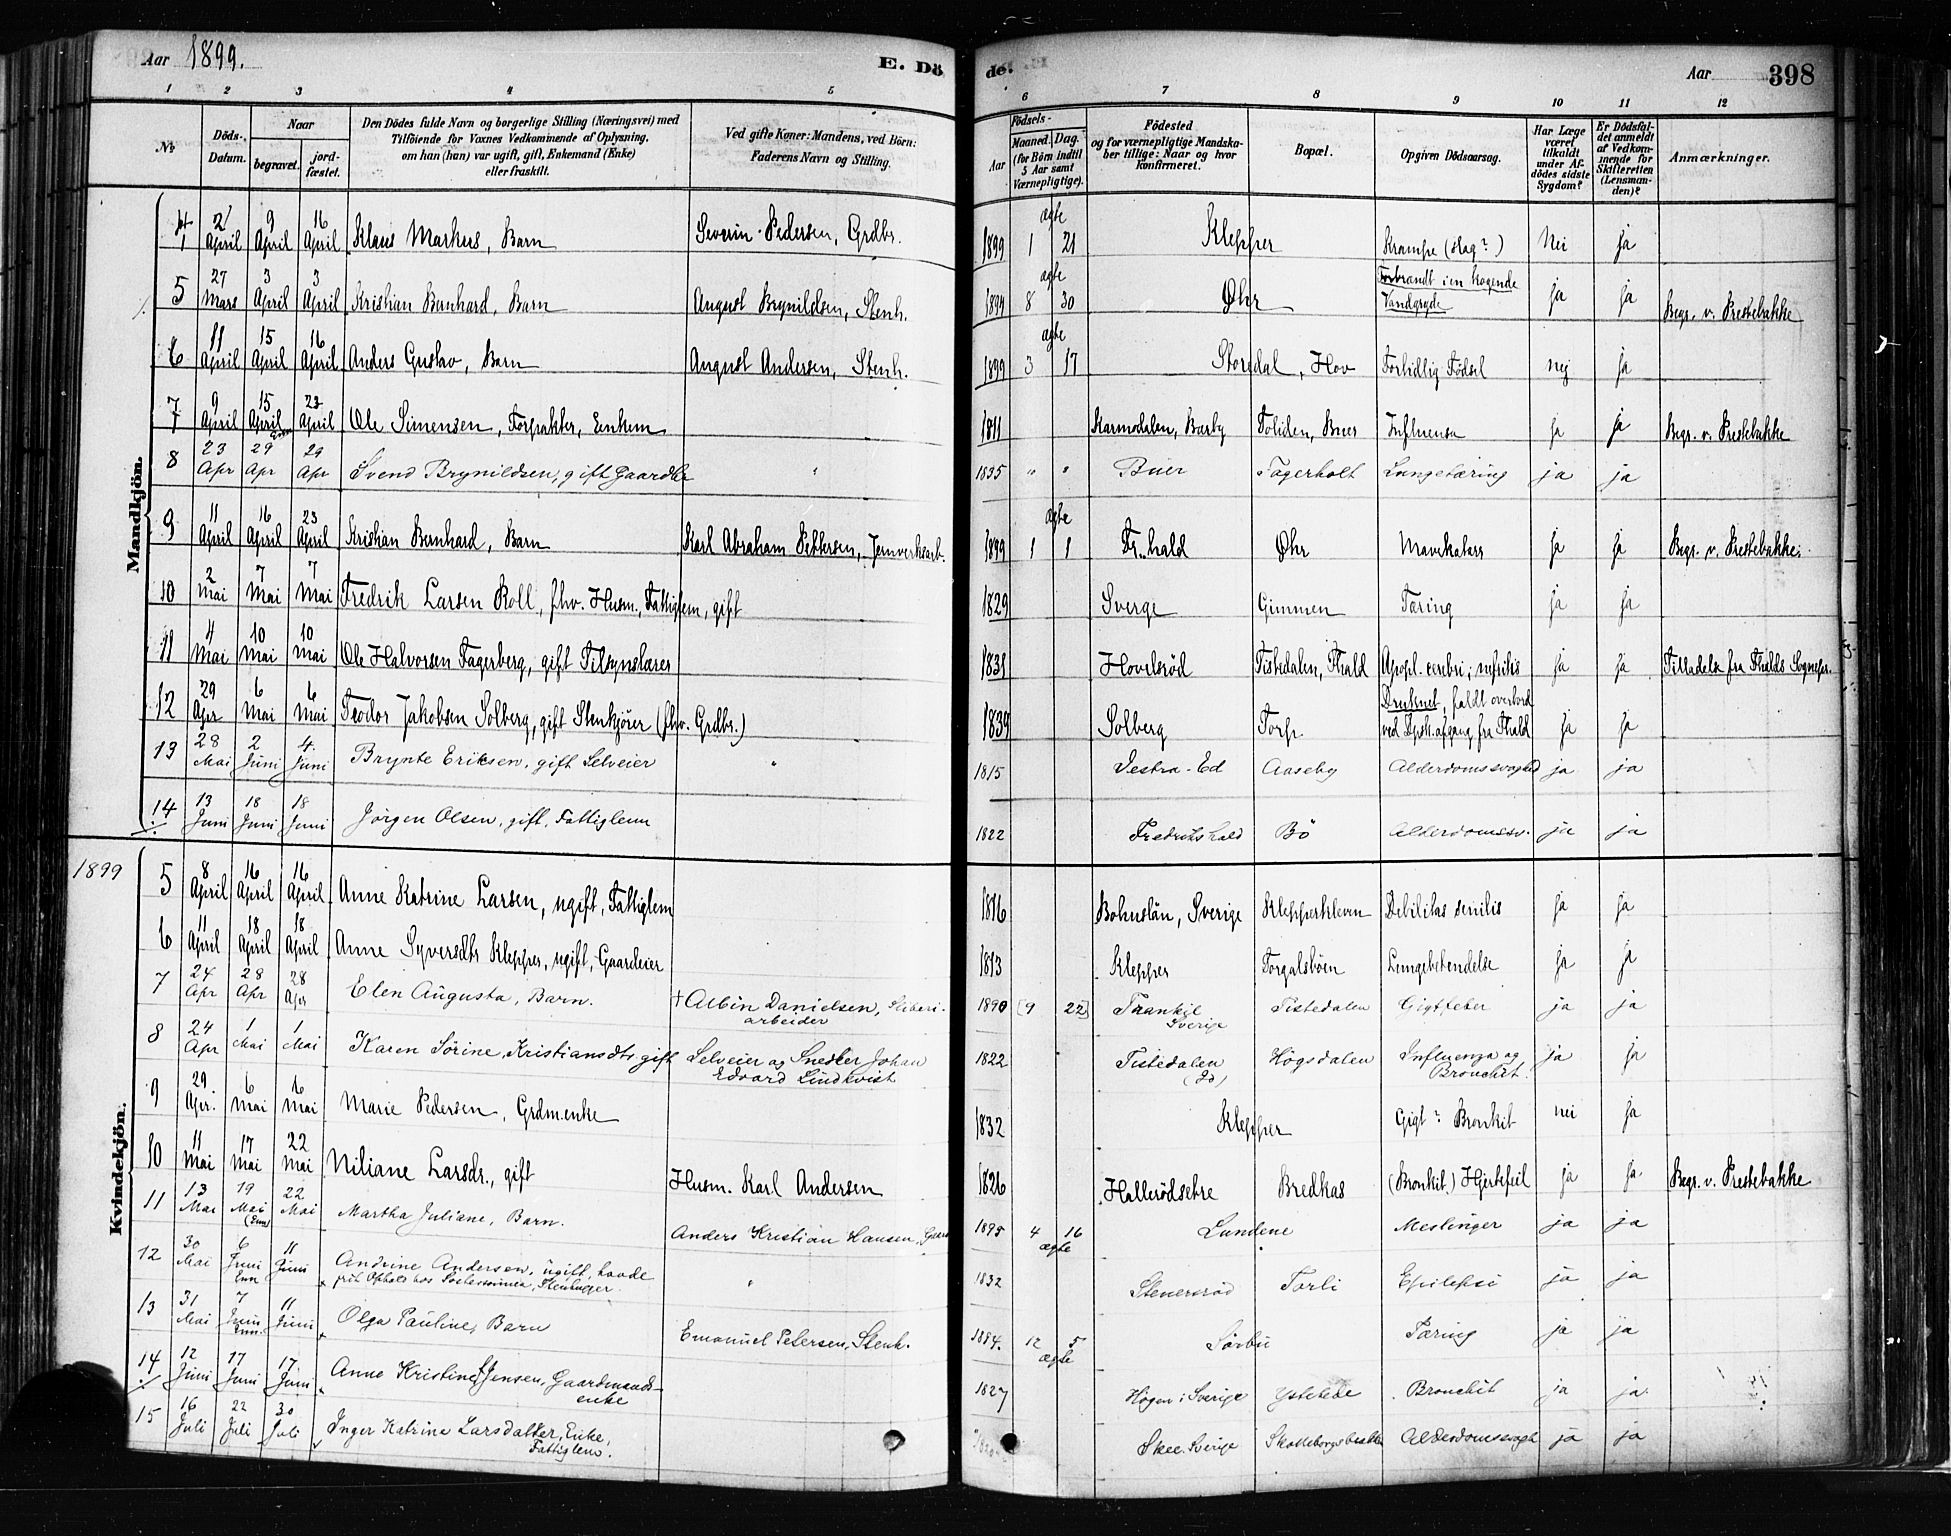 Aar 1899. E. Dö
de. Aar 398
1 2 3 4 5
6 7 8 9 10 11 12
No.
Döds-Datum.
Naar
begravet.
jord-fæstet.
Den Dödes fulde Navn og borgerlige Stilling (Næringsvei) med
Tilföiende for Voxnes Vedkommende af Oplysning,
om han (hun) var ugift, gift, Enkemand (Enke)
eller fraskilt.
Ved gifte Koner: Mandens, ved Börn:
Faderens Navn og Stilling.
Födsels-
Aar
Maaned. Dag.
(for Börn indtil
5 Aar samt
Værnepligtige).
Födested
og for værnepligtige Mandska-
ber tillige: Naar og hvor
konfirmeret.
Bopæl.
Opgiven Dödsaarsag.
Har Læge
været
tilkaldt
under Af-
dödes sidste
Sygdom?
Er Dödsfal-
det anmeldt
af Vedkom-
mende for
Skifteretten
(Lensman-
den)?
Anmærkninger.
Mandkjön.
4 2 April 9 April 16 April Klaus Markus, Barn Severin Pedersen, Grdbr. 1899 1 21 ægte Klepper Krampe (slag?) Nei ja
5 27 Mars 3 April 3 April Kristian Bernhard, Barn August Brynildsen, Stenh. 1894 8 30 ægte Øhr Forbrandt i en kogende Vandgryde ja ja Begr. v. Prestebakke
6 11 April 15 April 16 April Anders Gustav, Barn August Andersen, Stenh. 1899 3 17 ægte Storedal, Hov Fortidlig Födsel nej ja
7 9 April 15 April 23 April Ole Simensen, Forpakter, Enkem. 1811 Karmodalen, Barby Toliden, Buer Influensa ja ja Begr. v. Prestebakke
8 23 Apr 29 Apr 29 Apr Svend Brynildsen, gift Gaardbr " 1835 " " Buer Fagerholt Lungetæring ja ja
9 11 April 16 April 23 April Kristian Bernhard, Barn Karl Abraham Pettersen, Jernverksarb. 1899 1 1 ægte Fr.hald Øhr Mavekatarr ja ja Begr. v. Prestebakke.
10 2 Mai 7 Mai 7 Mai Fredrik Larsen Roll, fhv. Husm., Fattiglem, gift 1829 Sverge Gimmen Tæring ja ja
11 4 Mai 10 Mai 10 Mai Ole Halvorsen Fagerberg, gift Tilsynslærer 1831 Hovelsröd Tistedalen, Fhald Apopl. cerebri; nefritis ja ja Tilladelse fra Fhalds Sognepr.
12 29 Apr 6 Mai 6 Mai Teodor Jakobsen Solberg, gift Stenkjörer (fhv. Grdbr.) 1839 Solberg Torp. Druknet, faldt overbord ved Dpsk. afgang fra Fhald ja ja
13 28 Mai 2 Juni 4. Juni Brynte Eriksen, gift Selveier " 1815 Vestra-Ed Aaseby Alderdomssvaghed ja ja
14 13 Juni 18 Juni 18 Juni Jörgen Olsen, gift, Fattiglem 1822 Fredrikshald Bö Alderdomssv. ja ja
1899
Kvindekjön.
5 8 April 16 April 16 April Anne Katrine Larsen, ugift, Fattiglem 1816 Bohuslän, Sverige Klepperkleven Debilitas senilis ja ja
6 11 April 18 April 18 April Anne Syversdtr Klepper, ugift, Gaardeier 1813 Klepper Torgalsböen Lungebetendelse ja ja
7 24 Apr 28 Apr 28 Apr Elen Augusta, Barn. † Albin Danielsen, Sliberiarbeider 1890 [9 22] Frankil Sverige Tistedalen Gigtfeber ja ja
8 24 Apr 1 Mai 1 Mai Karen Sörine Kristiansdtr. gift Selveier og Snedker Johan Edvard Lindkvist 1822 Tistedalen (Id) Högsdalen Influenza og Bronchit. ja ja
9 29. Apr. 6 Mai 6 Mai Marie Pedersen, Grdm.enke 1832 Klepper Gigt? Bronkit nei ja
10 11 Mai 17 Mai 22 Mai Niliane Larsdr., gift Husm. Karl Andersen 1826 Hallerödsetre Bredkas (Bronkit.) Hjertefeil ja ja Begr. v. Prestebakke
11 13 Mai 19 Mai 22 Mai Martha Juliane, Barn. Anders Kristian Hansen, 1895 4 16 ægte Lundene Meslinger ja ja
12 30 Mai 6 Juni 11 Juni Andrine Andersen, ugift, havde frit Ophold hos Söstersönnen, Stenhugger. " 1832 Stenersröd Torli Epilepsi ja ja
13 31 Mai 7 Juni 11 Juni Olga Pauline, Barn Emanuel Petersen, Stenh. 1884. 12 5 ægte Sörbu Tæring ja ja
14 12 Juni 17 Juni 17. Juni Anne Kristine Jensen, Gaardmandsenke 1827 Högen i Sverige Ystehede Bronchit ja ja.
15 16 Juli 22 Juli 30 Juli Inger Katrine Larsdatter, Enke, Fattiglem. Skee. Sverige Skotteborgsbrakke Alderdomssvagh ja ja